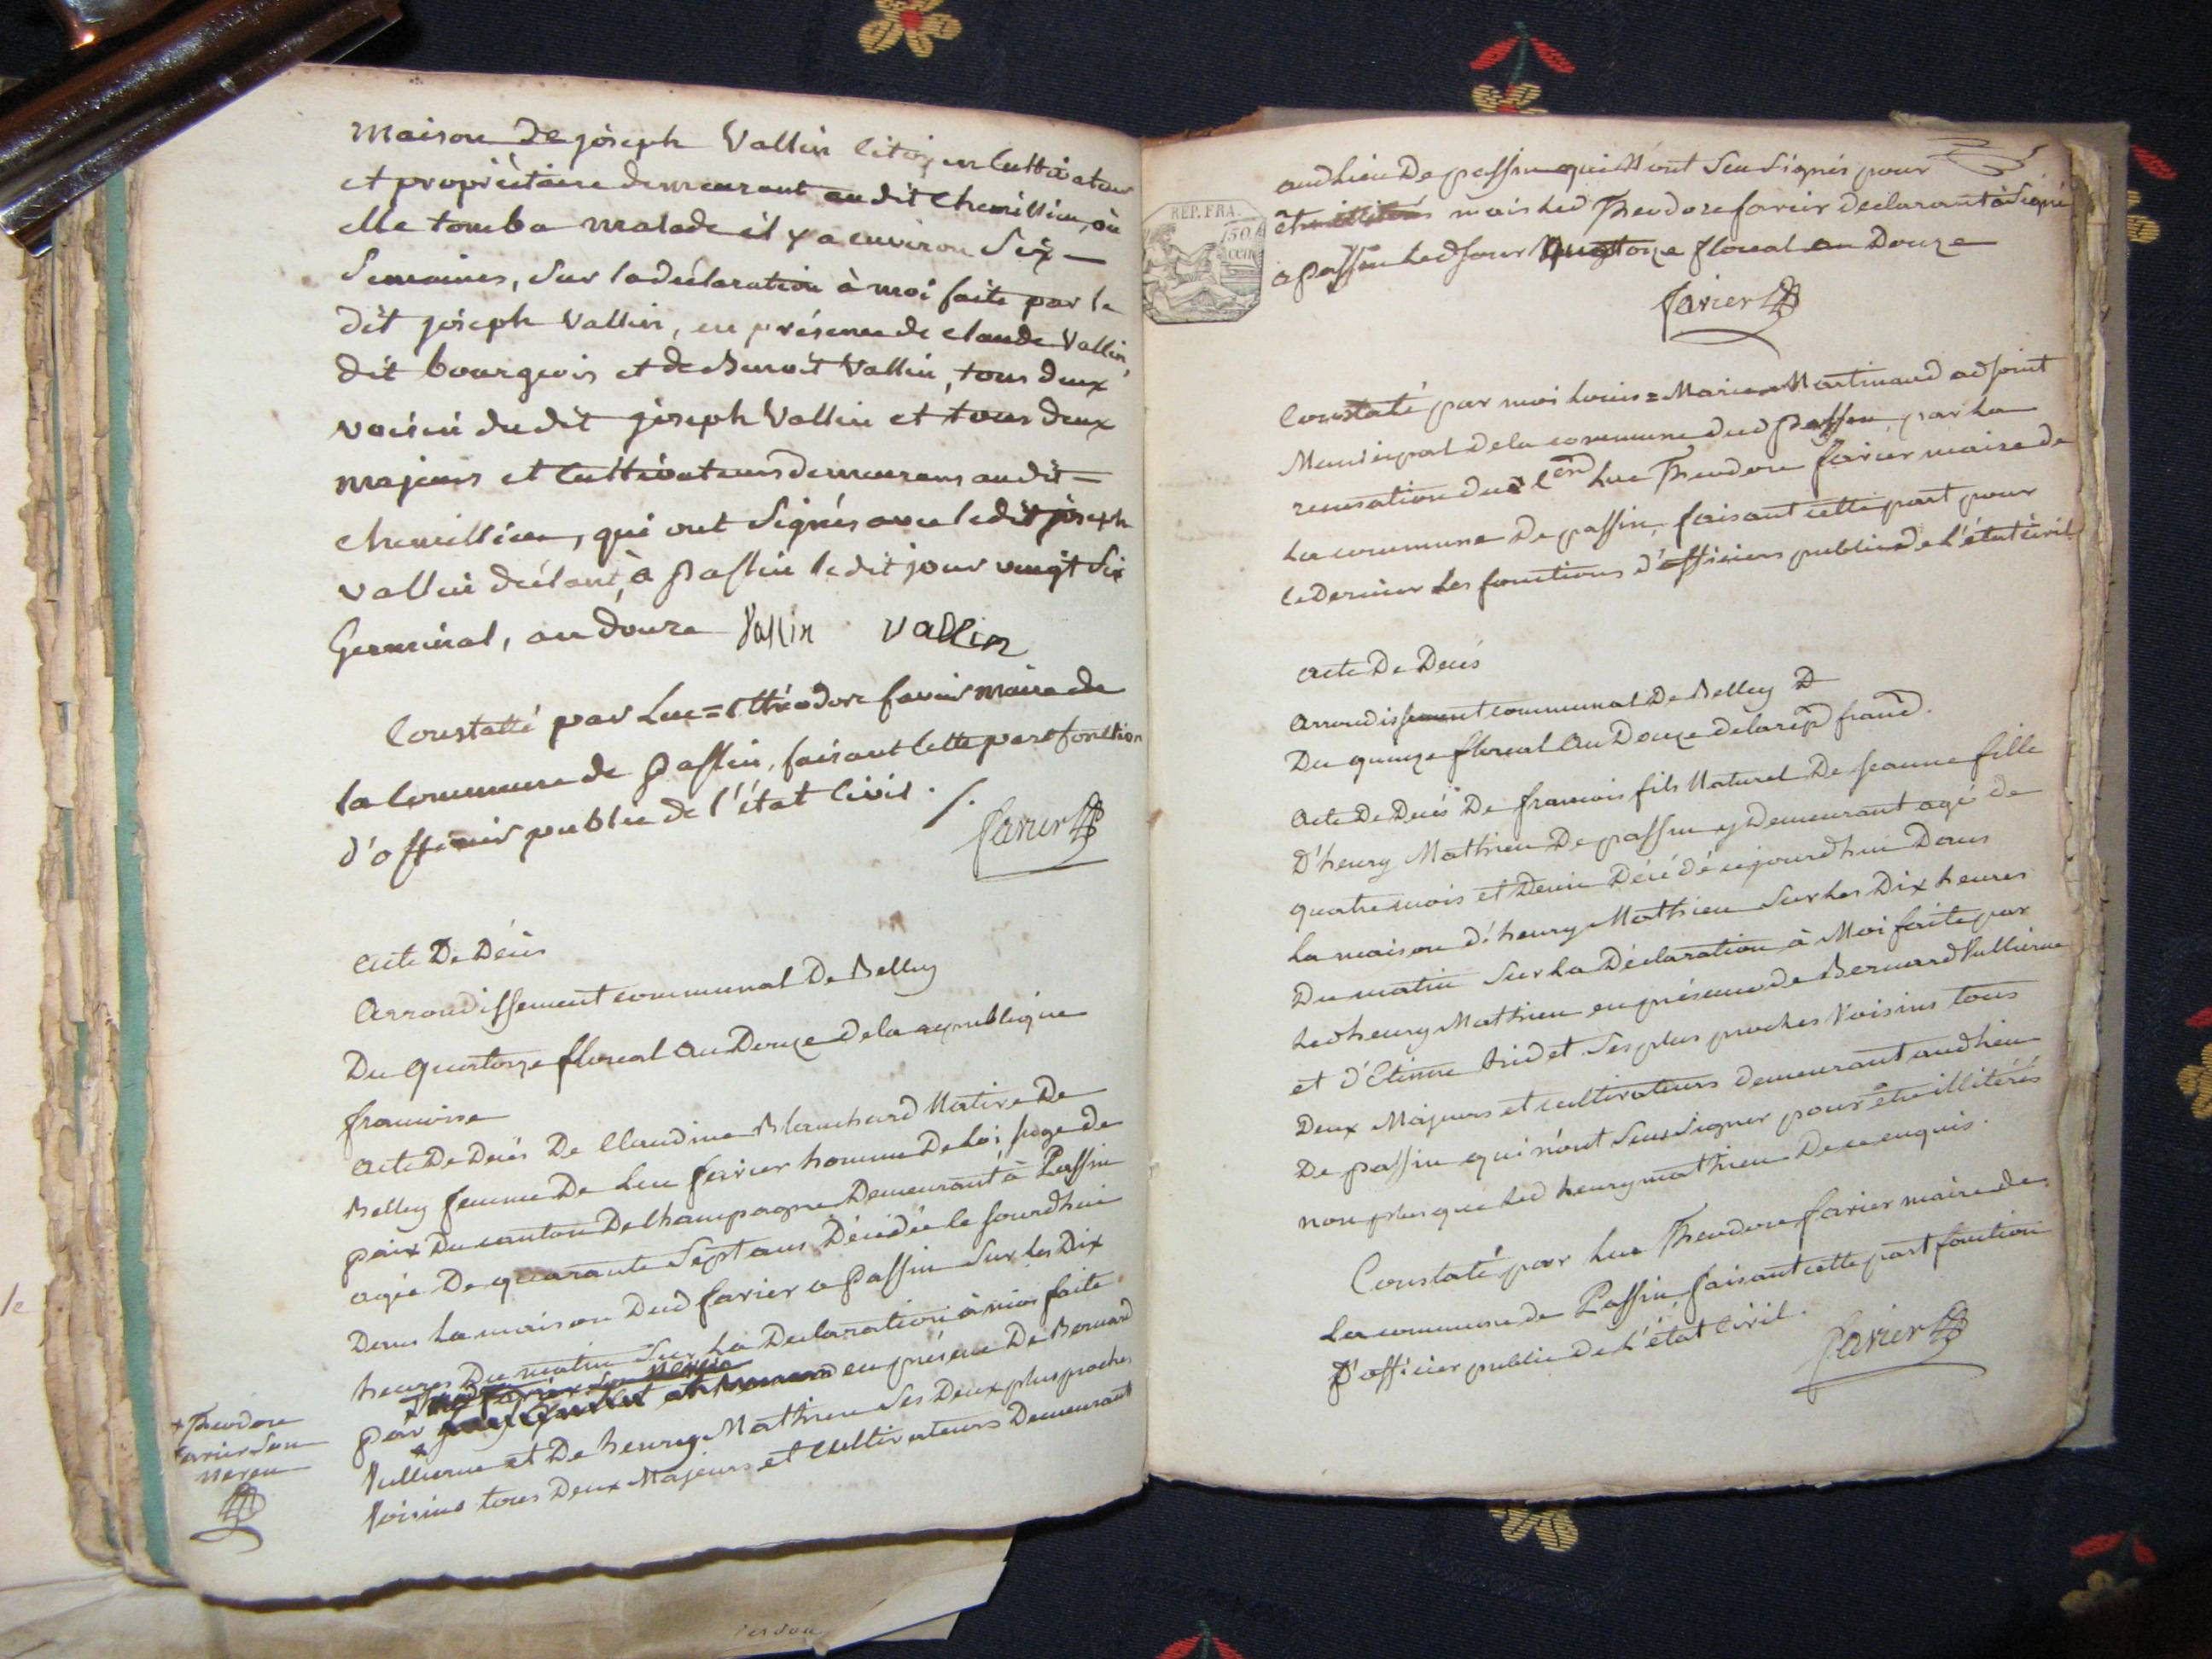 maison de joseph Vallin citoyen Cultivateur
et propriétaire demeurant audit Chemillieu, où
elle tomba malade il y a environ Six –
Semaines, Sur la déclaration à moi faite par le
dit joseph Vallin, en présence de claude Vallin,
dit bourgeois et de Benoit Vallin, tous deux
voisin dudit joseph Vallin et tous deux
majeurs et Cultivateurs demeurans audit –
chemillieu, qui ont Signés avec ledit joseph
vallin déclant, à Passin le dit jour vingt Six
Germinal, an douze Vallin vallin
Constatté par Luc=théodore favier maire de
la Commune de Passin, faisant Cette part fonction
d'officier public de l'état Civil ./.
favier
acte De Décès
Arrondissement communal De Belley
Du Quatorze floreal an Douze de la republique
francoise
acte De Décès De Claudine Blanchard Native De
Belley femme De Luc favier homme De Loi juge de
paix Du canton De Champagne Demeurant à Passin
agée De quarante Sept ans Décédée le jourdhui
Dans la maison Dud favier a Passin Sur les Dix
heures Du matin Sur La Declaration à moi faite
par en présence De Bernard
Vullierme et De henry Mathieu Ses Deux plus proches
Voisins tous Deux Majeurs et Cultivateurs Demeurant
+ Theodore
favier Son
neveu
REP. FRA.
50
audLieu De passin qui N'ont Seu Signés pour
être illiterés mais Led Theodore favier declarant à Signé
a passin Led jour Quatorze floreal an Douze
favier
Constaté par moi Louis=Marie Martinand adjoint
Municipal de la commune dud Passin, par La
recusation du Cen Luc Theodore favier maire de
La commune De passin, faisant cette part pour
ce Dernier Les fonctions d'officiers public de L'état civil
acte De Decés
arrondissement communal De Belley D
Du quinze floreal an Douze de la rep franc.
acte De Decés De francois fils Naturel De jeanne fille
D'henry Mathieu De passin y Demeurant agé de
quatre mois et Demi Décédé cejourdhui Dans
la maison d'henry Mathieu Sur Les Dix heures
Du matin Sur La Déclaration à Moi faite par
Led henry Mathieu en présence de Bernard Vullierme
et d'Etienne Ses plus proches Voisins tous
Deux Majeurs et cultivateurs demeurant audLieu
De passin qui n'ont Seu Signer pour être illiterés
non plus que Led henry mathieu De ce enquis.
Constaté par Luc Theodore favier maire de
La commune de Passin faisant cette part fonction
D'officier public De L'état Civil.
favier